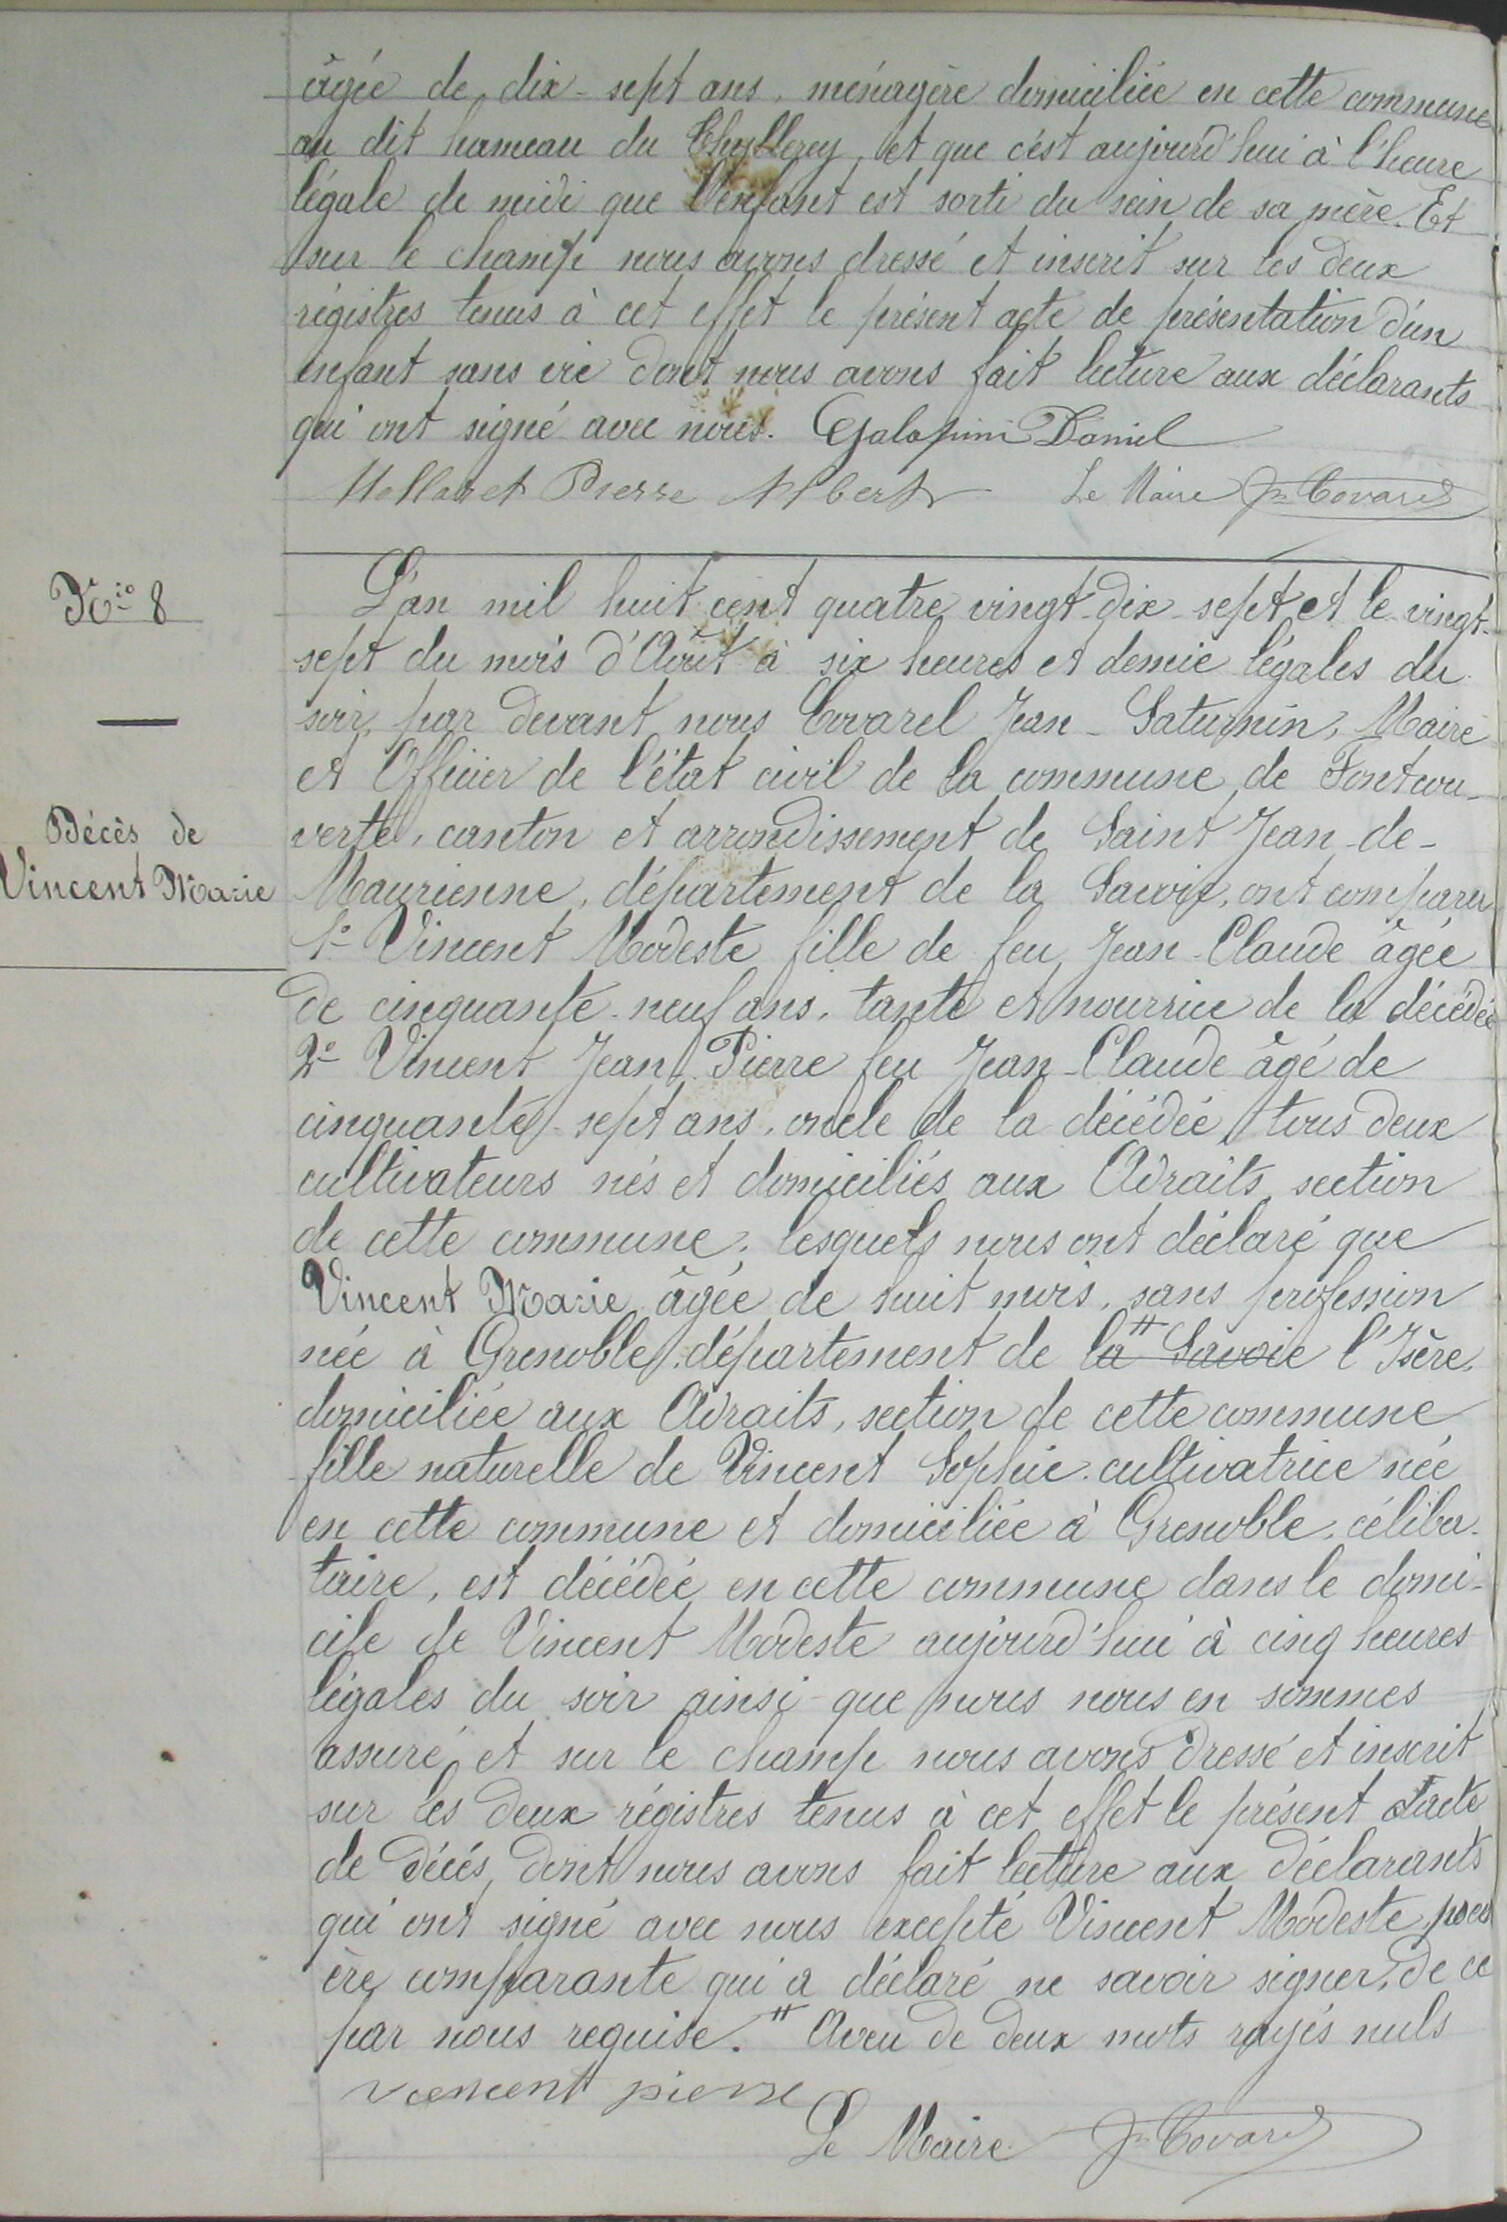 âgée de dix-sept ans, ménagère domiciliée en cette commune
au dit hameau du et que c'est aujourd'hui à l'heure
légale de midi que l'enfant est sorti du sein de sa mère. Et
sur le champ nous avons dressé et inscrit sur les deux
régistres tenus à cet effet le présent acte de présentation d'un
enfant sans vie dont nous avons fait lecture aux déclarants
qui ont signé avec nous. Galopini Daniel
Mollaret Pierre Albert Le Maire Jn Covarel
Nro 8
Décès de
Vincent Marie
L'an mil huit cent quatre vingt-dix-sept et le vingt-
sept du mois d'Août à six heures et demie légales du
soir, par devant nous Covarel Jean-Saturnin, Maire
et Officier de l'état civil de la commune de Fontcou-
verte, canton et arrondissement de Saint Jean-de-
Maurienne, département de la Savoie, ont comparu
1o Vincent Modeste fille de feu Jean-Claude âgée
de cinquante-neuf ans, tante et nourrice de la décédée
2o Vincent Jean-Pierre feu Jean-Claude âgé de
cinquante-sept ans, oncle de la décédée, tous deux
cultivateurs nés et domiciliés aux Adraits section
de cette commune; lesquels nous ont déclaré que
Vincent Marie âgée de huit mois, sans profession
née à Grenoble, département de la # Savoie l'Isère,
domiciliée aux Adraits, section de cette commune
fille naturelle de Vincent Sophie cultivatrice née
en cette commune et domiciliée à Grenoble, céliba-
taire, est décédée en cette commune dans le domi-
cile de Vincent Modeste aujourd'hui à cinq heures
légales du soir ainsi que nous nous en sommes
assuré, et sur le champ nous avons dressé et inscrit
sur les deux régistres tenus à cet effet le présent acte
de décés, dont nous avons fait lecture aux déclarants
qui ont signé avec nous excepté Vincent Modeste
comparante qui a déclaré ne savoir signer, de ce
par nous requise. # Aveu de deux mots rayés nuls
vencent pierre
Le Maire Jn Covarel